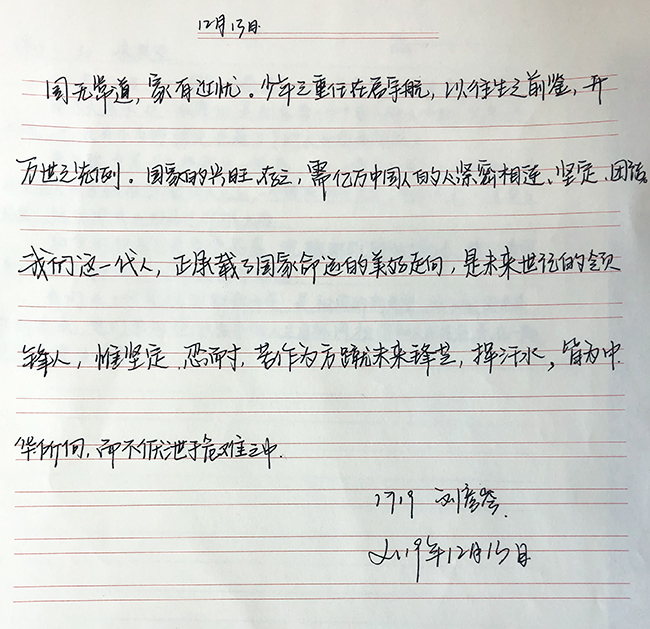 12月13日
国无常道,家有近忧。少年之重任在启宇航,以往生之前鉴,开
万世之先例。国家的兴旺、存立,需亿万中国人的人紧密相连、坚定、团结。
我们这一代人,正承载了国家命运的美好走向,是未来世纪的领
锋人,惟坚定、忍耐,苦作为方踏就未来锋芒,挥汗水,皆为中
华所向,而不伏泄于危难之中.
1719 刘彦
2019年12月13日